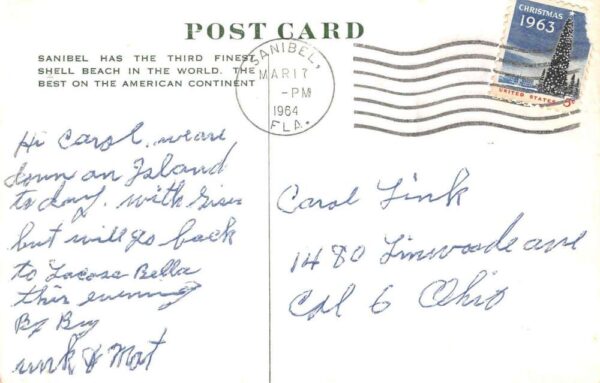 POST CARD
SANIBEL HAS THE THIRD FINEST
SHELL BEACH IN THE WORLD. THE
BEST ON THE AMERICAN CONTINENT
SANIBEL,
MAR 17
-PM
1964
FLA.
CHRISTMAS
1963
UNITED STATES 5¢
Hi Carol, we are
down on Island
to day. with
but will go back
to Lacosa Bella
this evening
By By
unk & Mat
Carol Link
1480 Linwoode ave
Col 6 Ohio